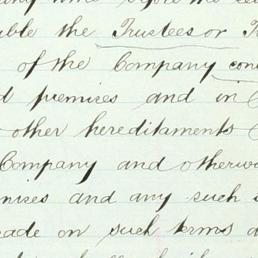 the Trustees or
of the Company
premises and in
other hereditaments
Company and otherwi
mises and any such
ade on such terms a